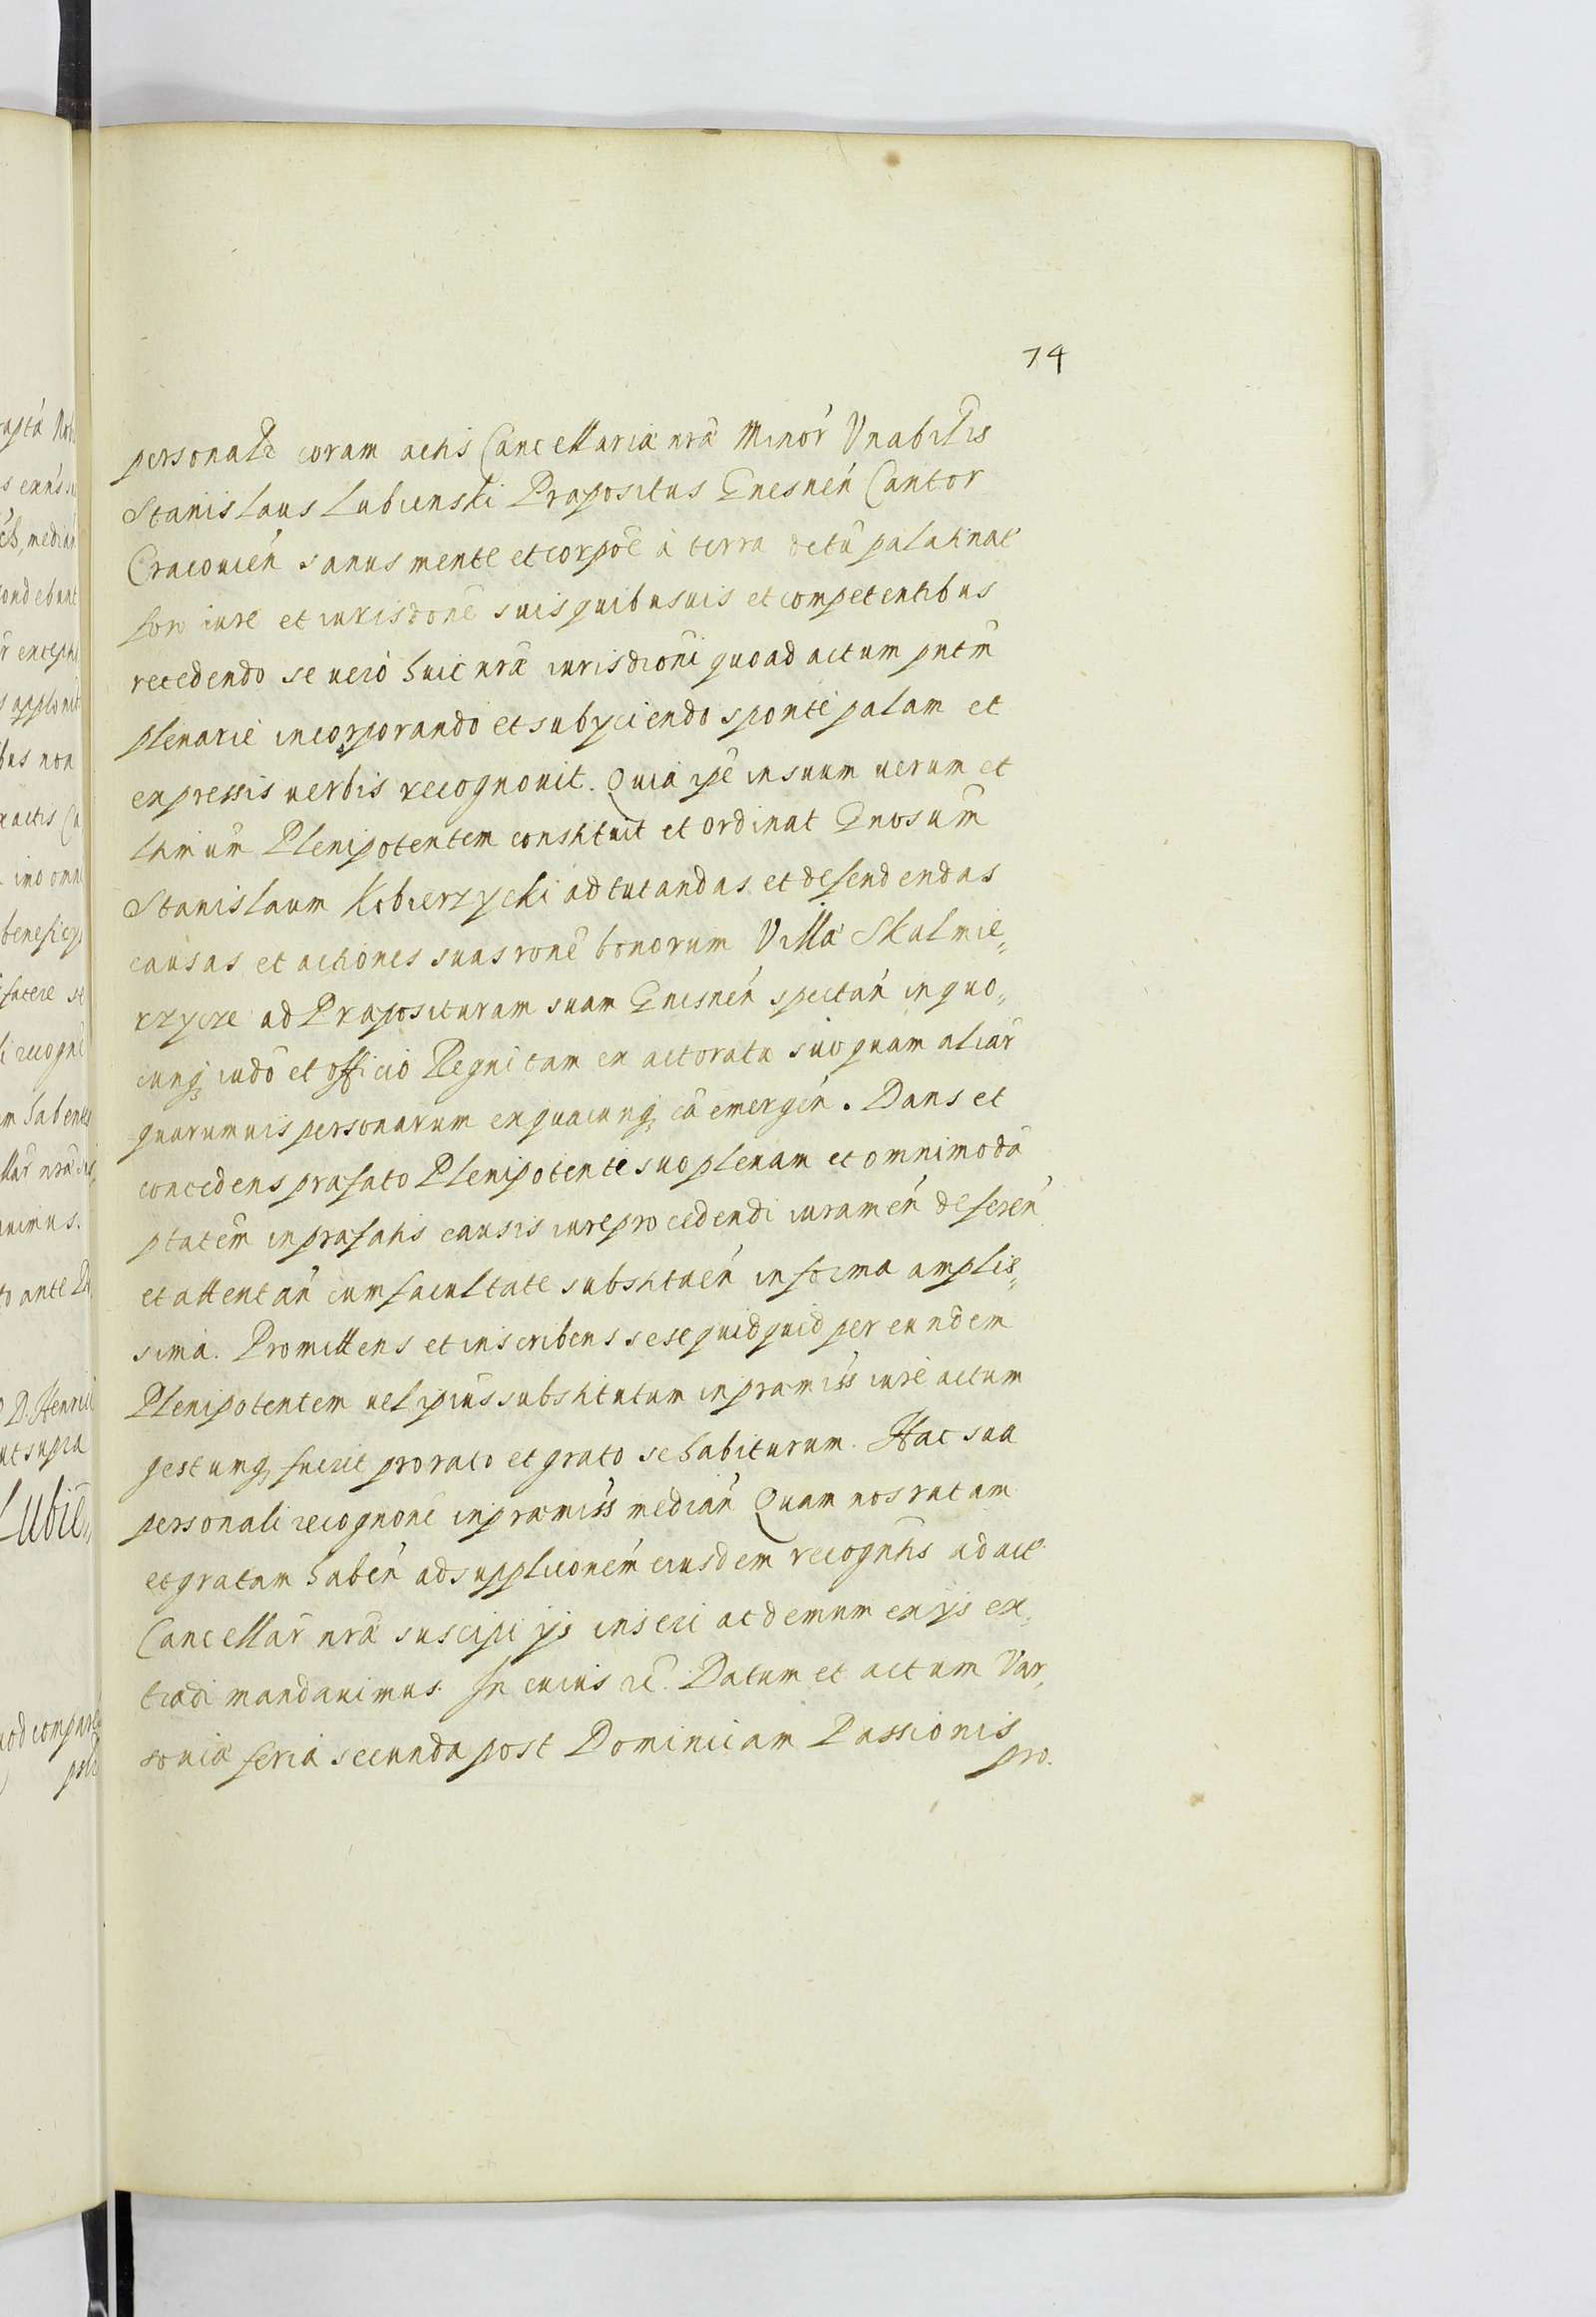 74
personalr coram actis Cancellariæ nrã Minor Vnabilis
Stanislaus Lubienski Præpositus Gnesnen Cantor
Cracouien sanus mente et corpoẽ à terra dctũ palatinat
foro iure et iurisdonẽ suis quibusuis et competentibus
recedendo se uerò huic nrã iurisdioni quoad actum pntm̃
plenariè incorporando et subyciendo spontè palam et
expressis uerbis recognouit. Quià ipẽ in suum uerum et
ltimum Plenipotentem constituit et ordinat Gnosum̃
Stanislaum Kobierzycki ad tutandas et defendendas
causas et actiones suas ronẽ bonorum Villæ Skalmie„
rzyce ad Præposituram suam Gnesnen spectan in quo„
cunq; iudo et officio Regni tam ex actoratu suo quam aliar
quarumuis personarum ex quacunq; cã emergen. Dans et
concedens præfato Plenipotenti suo plenam et omnimodã
ptatem̃ in præfatis causis iure procedendi iuramen deferen
et attentan cum facultate substituen in forma amplis„
sima. Promittens et inscribens sese quidquid per eundem
Plenipotentem uel ipius substitutum in præmiss iurè actum
gestumq; fuerit pro rato et grato se habiturum. Hac sua
personali recognonẽ in præmiss median Quam nos ratam
et gratam haben ad supplicionem eiusdem recogntis ad act
Cancellar nrã suscipi ys inseri ac demum ex ys ex„
tradi mandauimus. In cuius rẽ. Datum et actum Var„
souiæ feria secunda post Dominicam Passionis
pro.